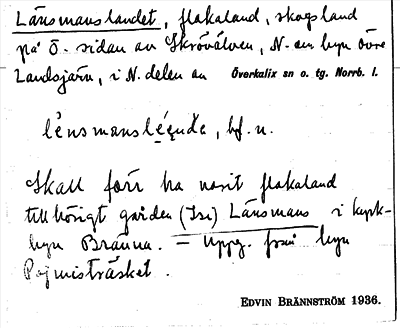 Länsmanslandet, flakaland, skogsland
på Ö. sidan av Skrövälven, N. om byn Övre
Landsjärn, i N. delen av Överkalix sn o. tg. Norrb. l.
bf. n.
Skall förr ha varit flakaland
tillhörigt gården (Isi) Länsmans i kyrk-
byn Bränna. — Uppg. från byn
Pajmisträsket.
EDVIN BRÄNNSTRÖM 1936.